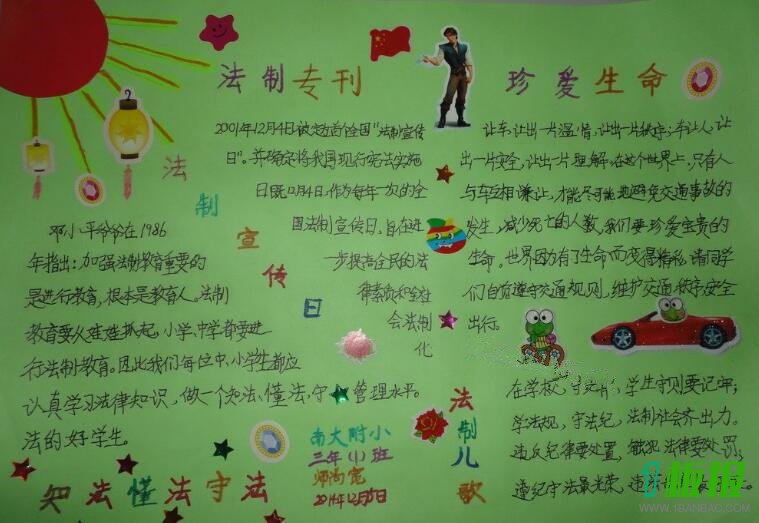 法制专刊
珍爱生命
法制宣传日
2001年12月4日被定为首个全国"法制宣传
日"。并确定将我国现行宪法实施
日既12月4日,作为每年一次的全
国法制宣传日,旨在进
一步提高全民的法
律素质和全社
会法制
化
管理水平。
邓小平爷爷在1986
年指出:加强法制教育重要的
是进行教育,根本是教育人。法制
教育要从娃娃抓起,小学、中学都要进
行法制教育。因此我们每位中、小学生都应
认真学习法律知识,做一个知法、懂法,守
法的好学生。
知法懂法守法
让车,让出一片温情,让出一片秩序;车让人,让
出一片安全,让出一片理解,在这个世界上,只有人
与车互相谦让,才能尽可能地避免交通事故的
发生,减少死亡的人数,我们要珍爱宝贵的
生命。世界因为有了生命而变得精彩,请同学
们自觉遵守交通规则,维护交通秩序安全
出行。
法制儿歌
在学校,守 学生守则要记牢;
学法规,守法纪,法制社会齐出力。
违反纪律要处置,触犯法律要处罚;
遵纪守法最光荣,违法
南大附小
三年(1)班
2014年12月
WWW.1BANBAO.COM
板报